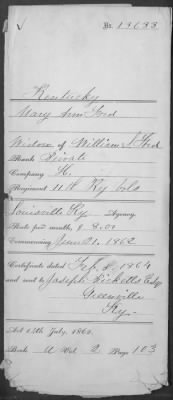 ✓ No. 13633
Kentucky
Mary Ann Ford
Widow of William S. Ford
Rank Private
Company H.
Regiment 11th Ky Vols
Louisville Ky — Agency
Rate per month, $ 8.00
Commencing June 21. 1862
Certificate dated Feb. 8, 1864
and sent to Joseph Ricketts Esq
Greenville
Ky.
Act 14th July, 1862.
Book A Vol. 2 Page 103